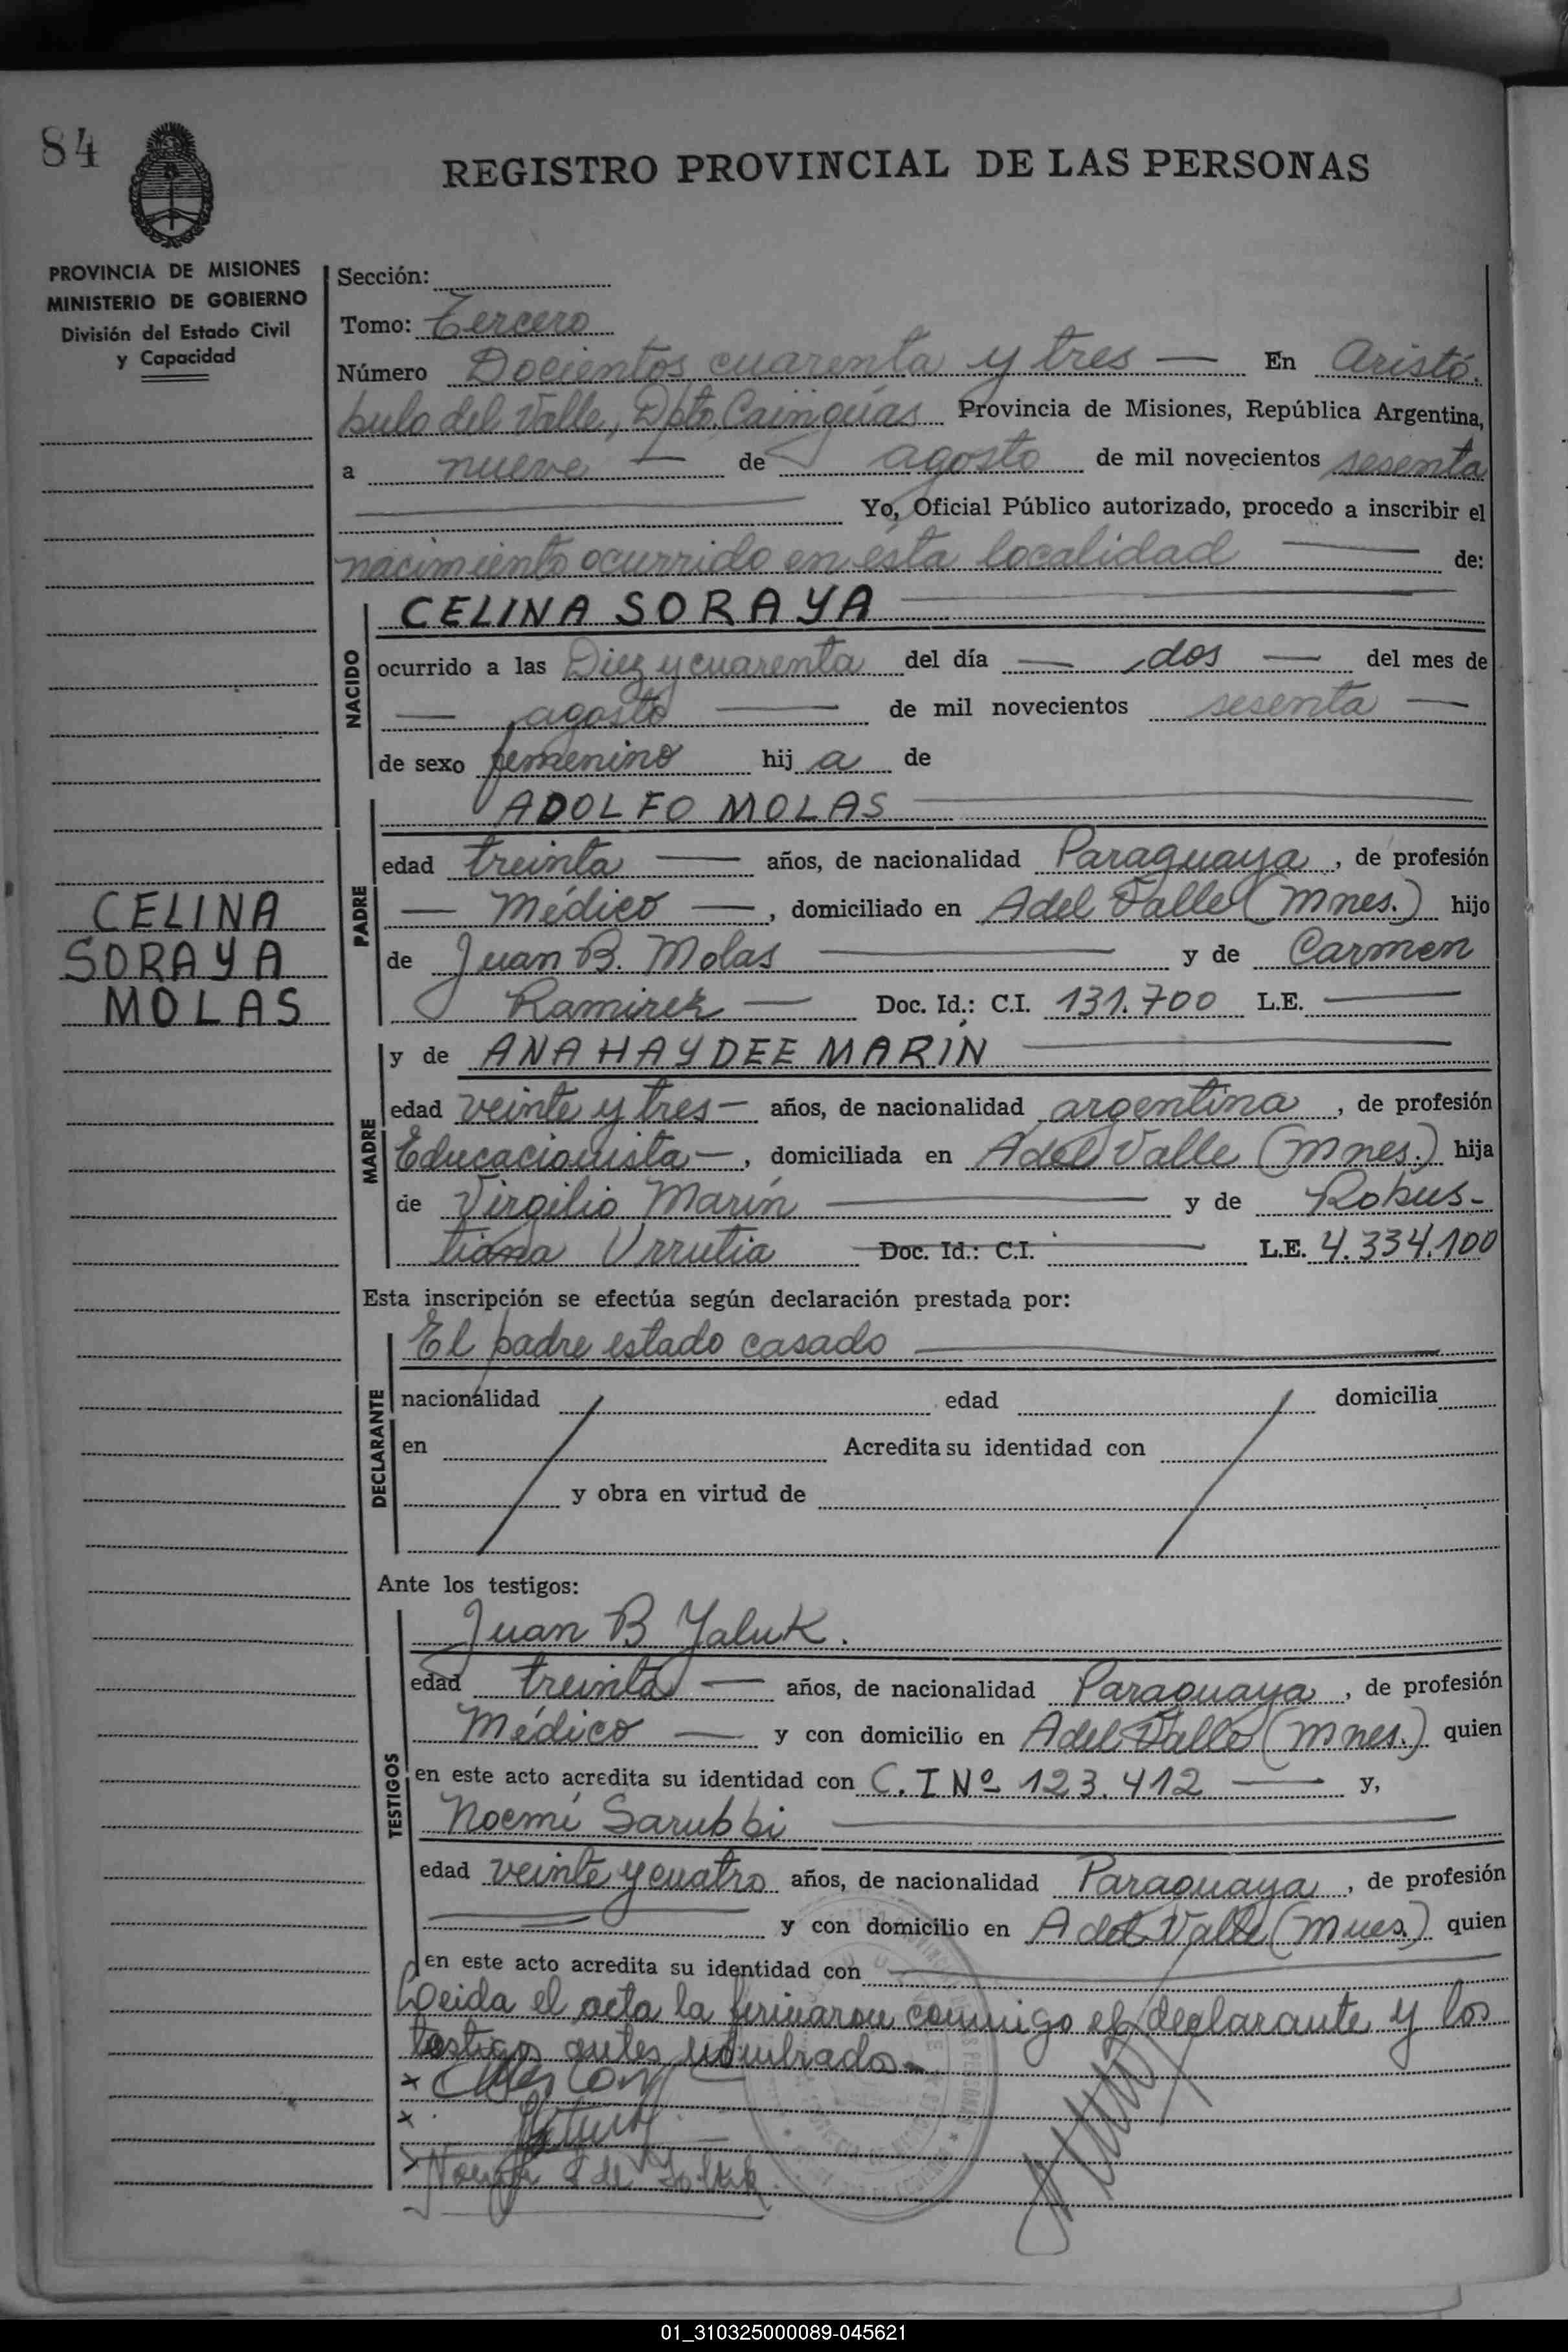 84
REGISTRO PROVINCIAL DE LAS PERSONAS
PROVINCIA DE MISIONES
MINISTERIO DE GOBIERNO
División del Estado Civil
y Capacidad
Sección:
Tomo: Tercero
Número Docientos cuarenta y tres — En Aristó.
bulo del Valle, Dpto. Cainguas Provincia de Misiones, República Argentina,
a nueve — de agosto de mil novecientos sesenta
Yo, Oficial Público autorizado, procedo a inscribir el
nacimiento ocurrido en ésta localidad — de:
NACIDO
CELINA SORAYA
ocurrido a las Diez y cuarenta del día — dos — del mes de
— agosto — de mil novecientos sesenta —
de sexo femenino hij a de
PADRE
ADOLFO MOLAS
edad treinta — años, de nacionalidad Paraguaya, de profesión
— Médico —, domiciliado en A del Valle (Mnes.) hijo
de Juan B. Molas — y de Carmen
Ramirez — Doc. Id.: C.I. 131.700 L.E. —
CELINA
SORAYA
MOLAS
MADRE
y de ANA HAYDEE MARÍN
edad veinte y tres — años, de nacionalidad argentina, de profesión
Educacionista —, domiciliada en A del Valle (Mnes.) hija
de Virgilio Marín — y de Robus-
tiana Urrutia Doc. Id.: C.I. L.E. 4.334.100
Esta inscripción se efectúa según declaración prestada por:
DECLARANTE
El padre estado casado
nacionalidad edad domicilia
en Acredita su identidad con
y obra en virtud de
Ante los testigos:
TESTIGOS
Juan B Yaluk.
edad treinta — años, de nacionalidad Paraguaya, de profesión
Médico — y con domicilio en A del Valle (Mnes.) quien
en este acto acredita su identidad con C.I Nº 123.412 — y,
Noemí Sarubbi
edad veinte y cuatro años, de nacionalidad Paraguaya, de profesión
y con domicilio en A del Valle (Mnes.) quien
en este acto acredita su identidad con
Leida el acta la firmaron conmigo el declarante y los
testigos antes nombrados.
01_310325000089-045621